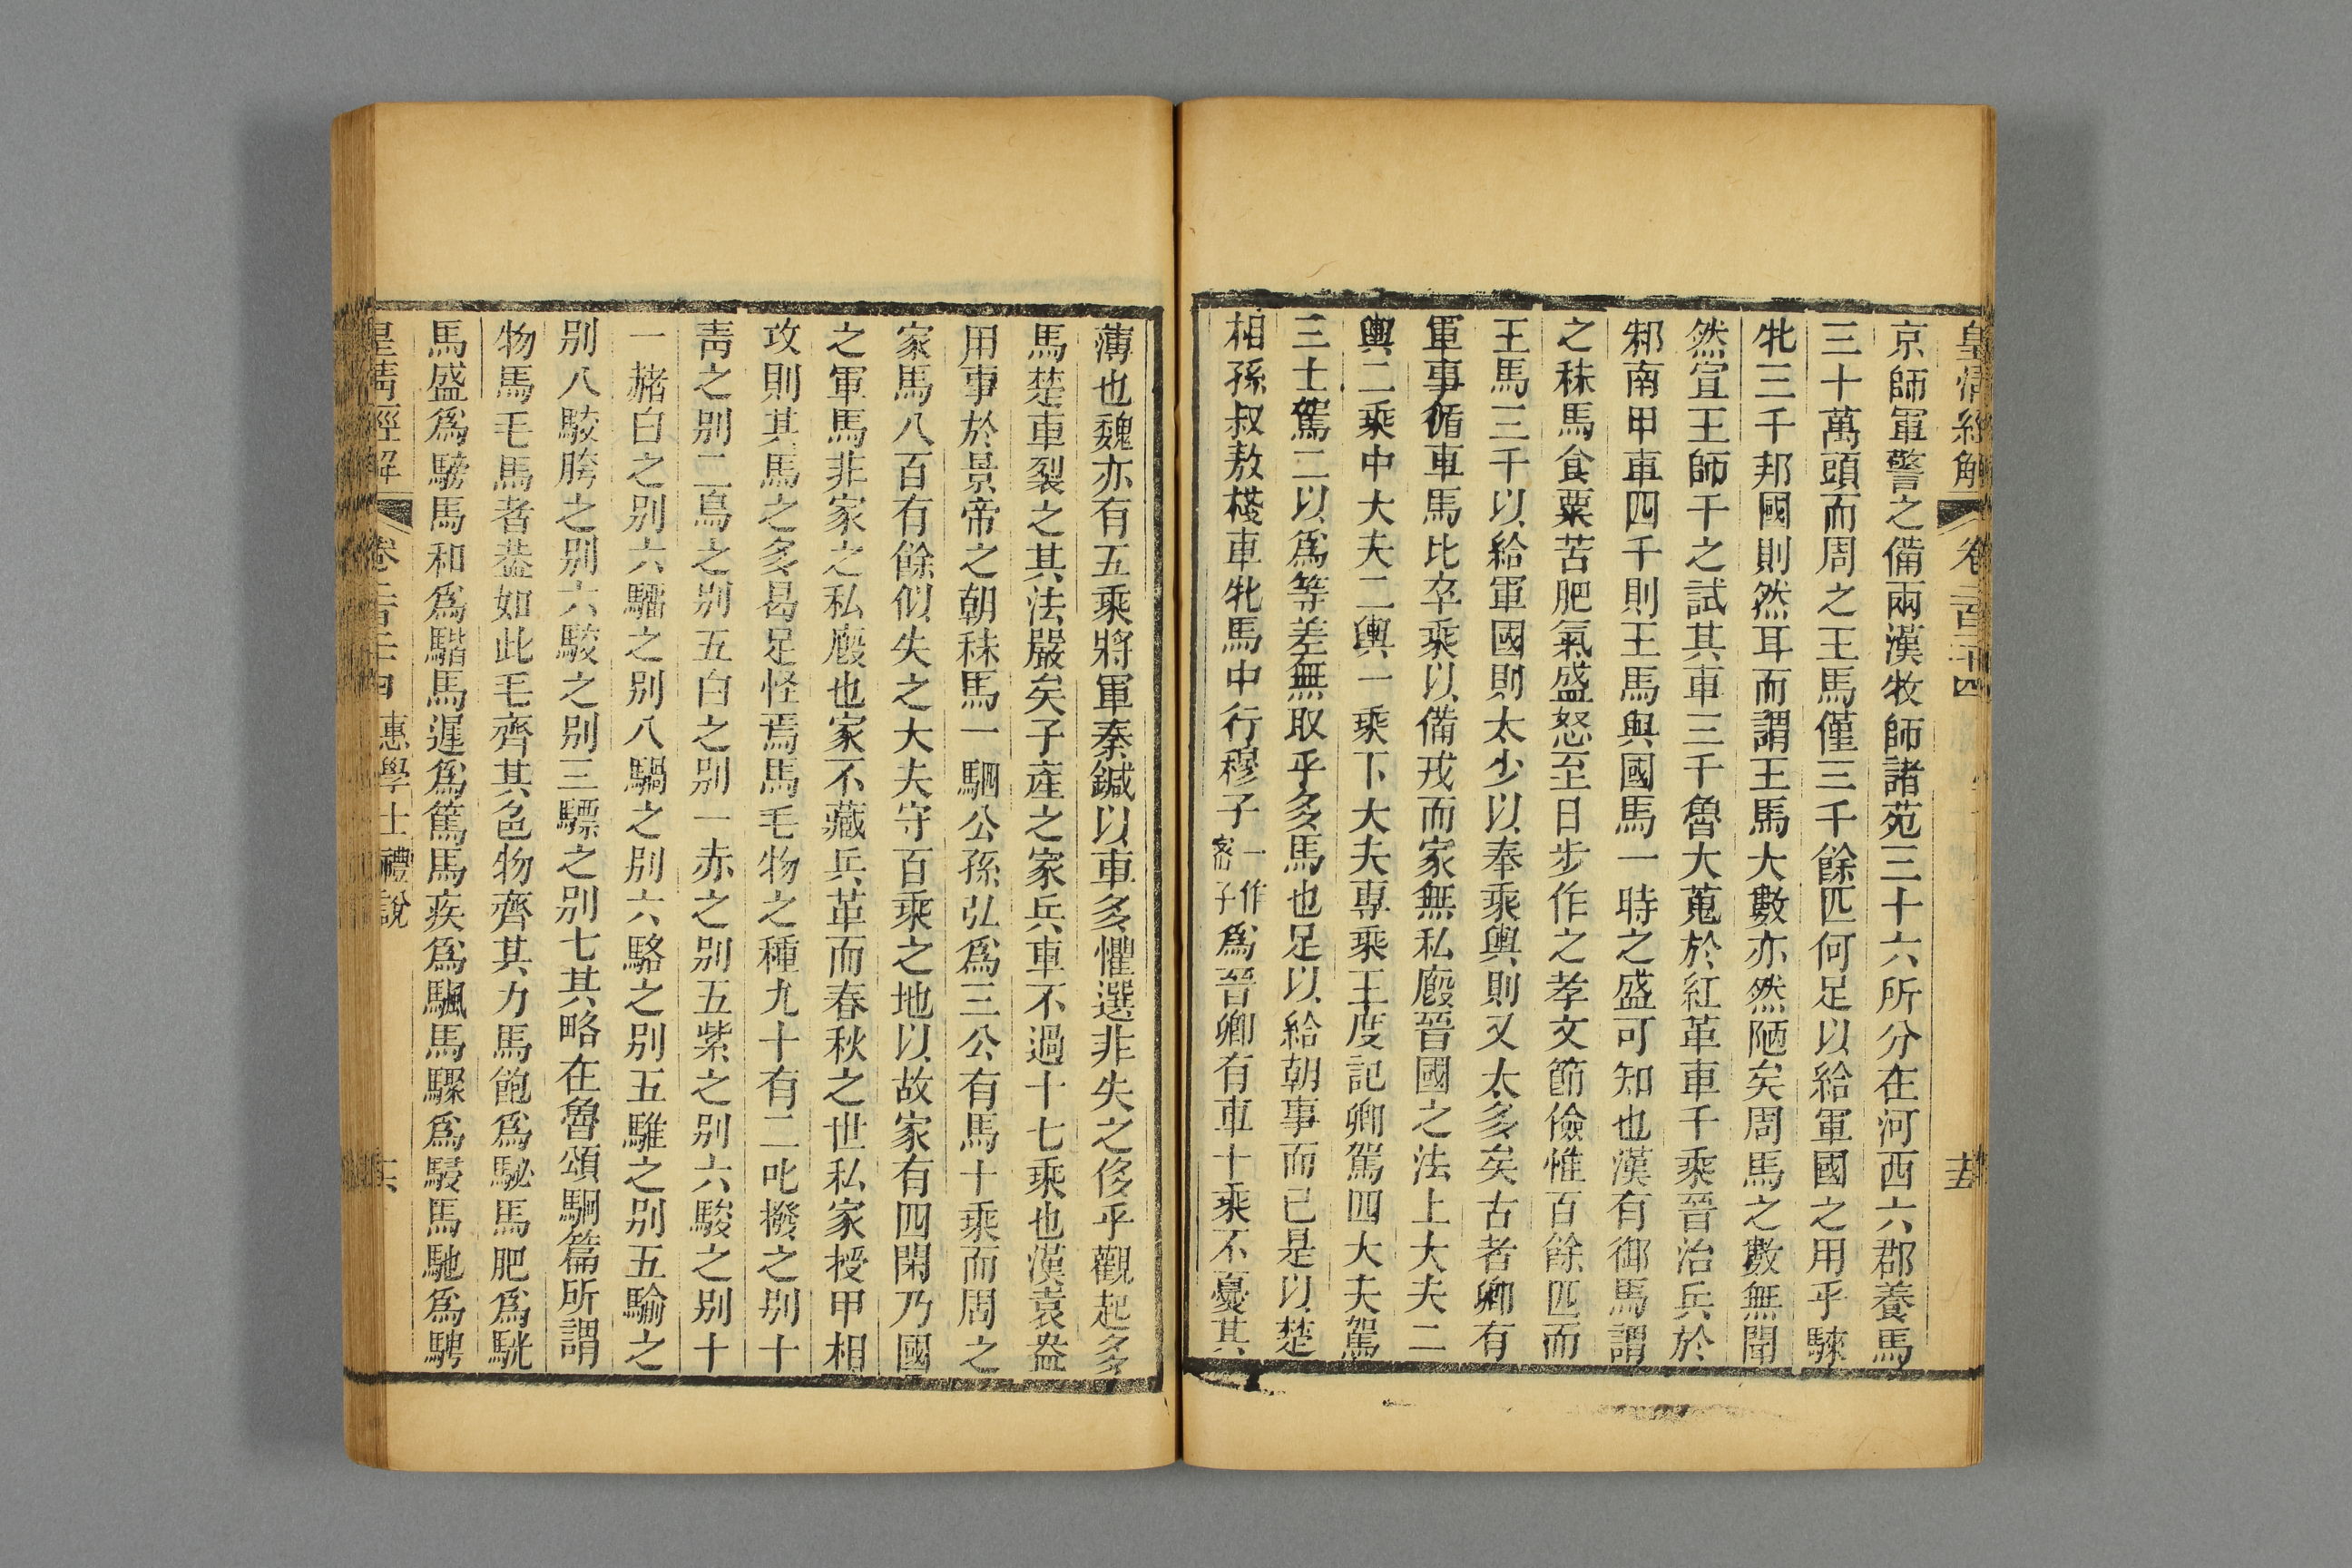 皇清經解 卷二百二十四 十五
京師軍警之備兩漢牧師諸苑三十六所分在河西六郡養馬
三十萬頭而周之王馬僅三千餘匹何足以給軍國之用乎騋
牝三千邦國則然耳而謂王馬大數亦然陋矣周馬之數無聞
然宣王師干之試其車三千魯大蒐於紅革車千乘晉治兵於
邾南甲車四千則王馬與國馬一時之盛可知也漢有御馬謂
之秣馬食粟苦肥氣盛怒至日步作之孝文節儉惟百餘匹而
王馬三千以給軍國則太少以奉乘輿則又太多矣古者卿有
軍事循車馬比卒乘以備戎而家無私廄晉國之法上大夫二
輿二乘中大夫二輿一乘下大夫專乘王度記卿駕四大夫駕
三士駕二以爲等差無取乎多馬也足以給朝事而已是以楚
相孫叔敖棧車牝馬中行穆子一作密子爲晉卿有車十乘不憂其
薄也魏亦有五乘將軍秦鍼以車多懼選非失之侈乎觀起多
馬楚車裂之其法嚴矣子產之家兵車不過十七乘也漢袁盎
用事於景帝之朝秣馬一駟公孫弘爲三公有馬十乘而周之
家馬八百有餘似失之大夫守百乘之地以故家有四閑乃國
之軍馬非家之私廄也家不藏兵革而春秋之世私家授甲相
攻則其馬之多曷足怪焉馬毛物之種九十有二叱撥之别十
靑之别二烏之别五白之别一赤之别五紫之别六駿之别十
一赭白之别六騮之别八騧之别六駱之别五騅之别五騟之
别八駮胯之别六駮之别三驃之别七其略在魯頌駉篇所謂
物馬毛馬者葢如此毛齊其色物齊其力馬飽爲駜馬肥爲駫
馬盛爲騯馬和爲騽馬遲爲篤馬疾爲颿馬驟爲駸馬馳爲騁
皇清經解 卷二百二十四 惠學士禮說 十六